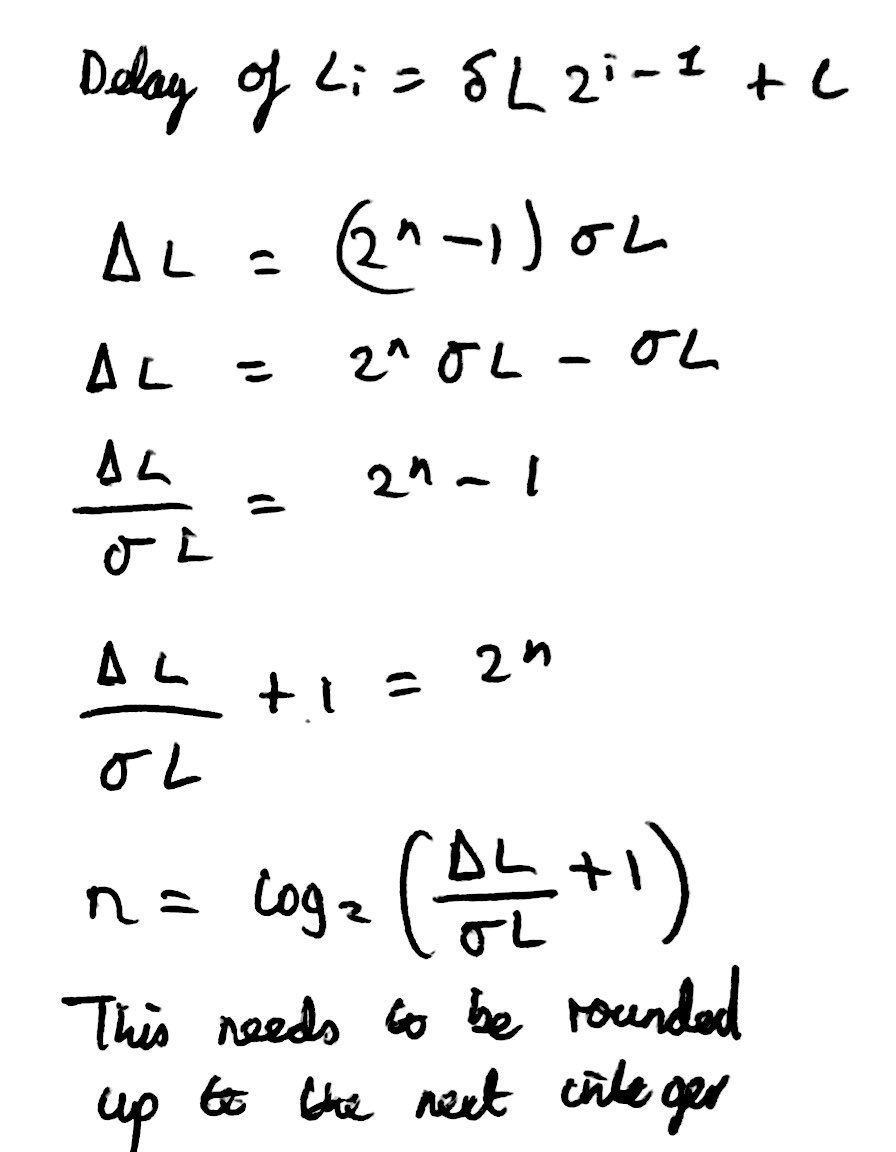 Delay of Li = δL 2^(i-1) + L
ΔL = (2^n - 1) σL
ΔL = 2^n σL - σL
ΔL / σL = 2^n - 1
ΔL / σL + 1 = 2^n
n = log₂ (ΔL / σL + 1)
This needs to be rounded
up to the next integer